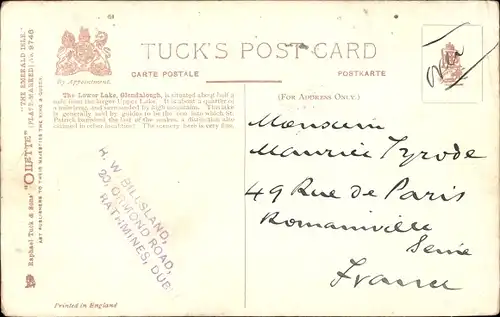 TUCK'S POST CARD
CARTE POSTALE
POSTKARTE
By Appointment.
(FOR ADDRESS ONLY.)
The Lower Lake, Glendalough, is situated about half a
mile from the larger Upper Lake. It is about a quarter of
a mile long, and surrounded by high mountains. This lake
is generally said by guides to be the one into which St.
Patrick banished the last of the snakes, a distinction also
claimed by other localities. The scenery here is very fine.
Raphael Tuck & Sons' "OILETTE" "THE EMERALD ISLE."
(PLATE-MARKED) No. 9746
ART PUBLISHERS TO THEIR MAJESTIES THE KING & QUEEN.
H. W. BILLSLAND,
20, ORMOND ROAD,
RATHMINES, DUB
Monsieur
Maurice Tyrode
49 Rue de Paris
Romainville
Seine
France
Printed in England